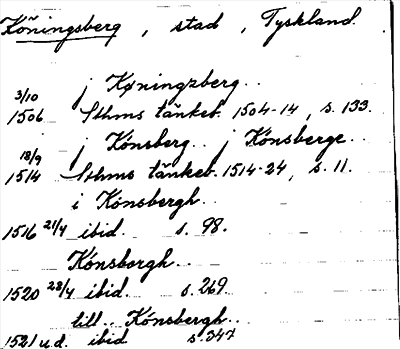 Köningsberg, stad, Tyskland.
j Køningzberg..
3/10
1506 Sthms tänkeb. 1504-14, s. 133.
j Könsberg.. j Könsberge..
18/9
1514 Sthms tänkeb. 1514-24, s. 11.
i Könsbergh..
1516 21/4 ibid. s. 98.
Könsborgh..
1520 23/4 ibid. s. 269.
till.. Könsbergh..
1521 u.d. ibid s. 347